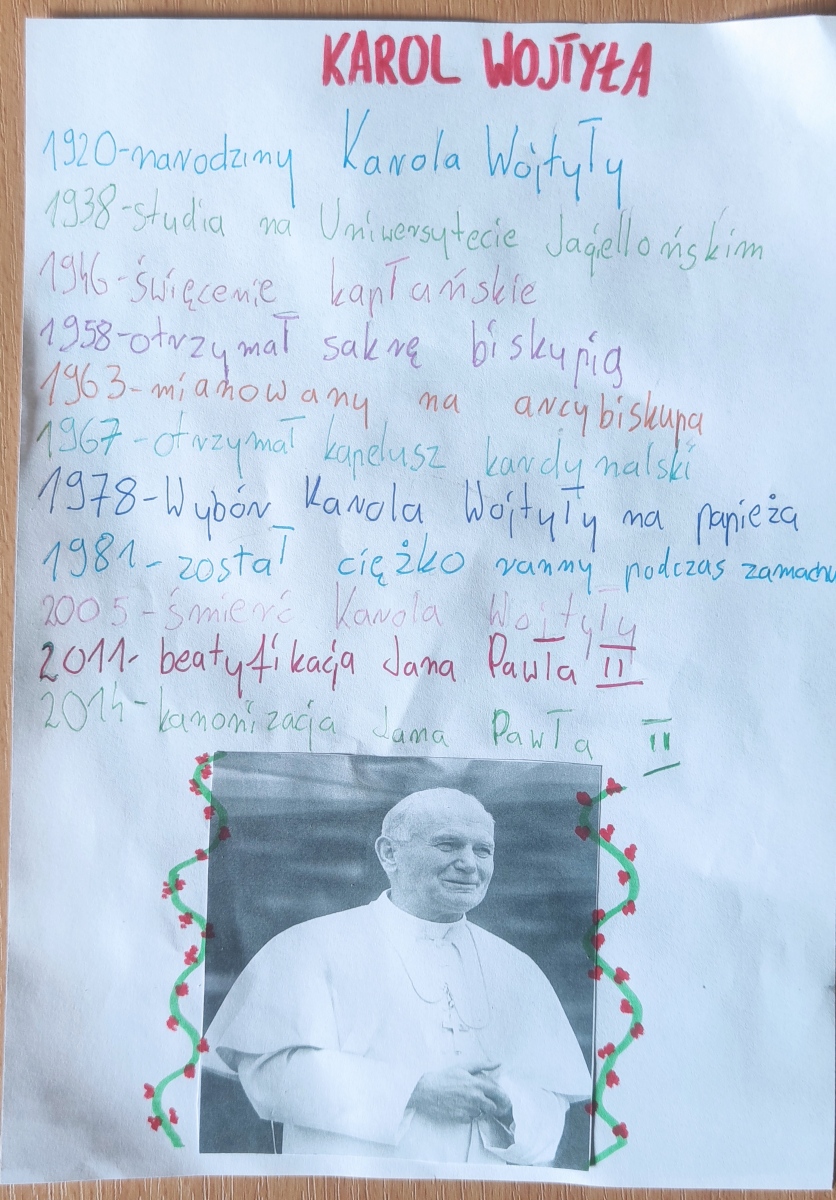 KAROL WOJTYŁA
1920-narodziny Karola Wojtyły
1938-studia na Uniwersytecie Jagiellońskim
1946-święcenie kapłańskie
1958-otrzymał sakrę biskupią
1963-mianowany na arcybiskupa
1967-otrzymał kapelusz kardynalski
1978-Wybór Karola Wojtyły na papieża
1981-został ciężko ranny podczas zamachu
2005-śmierć Karola Wojtyły
2011-beatyfikacja Jana Pawła II
2014-kanonizacja Jana Pawła II